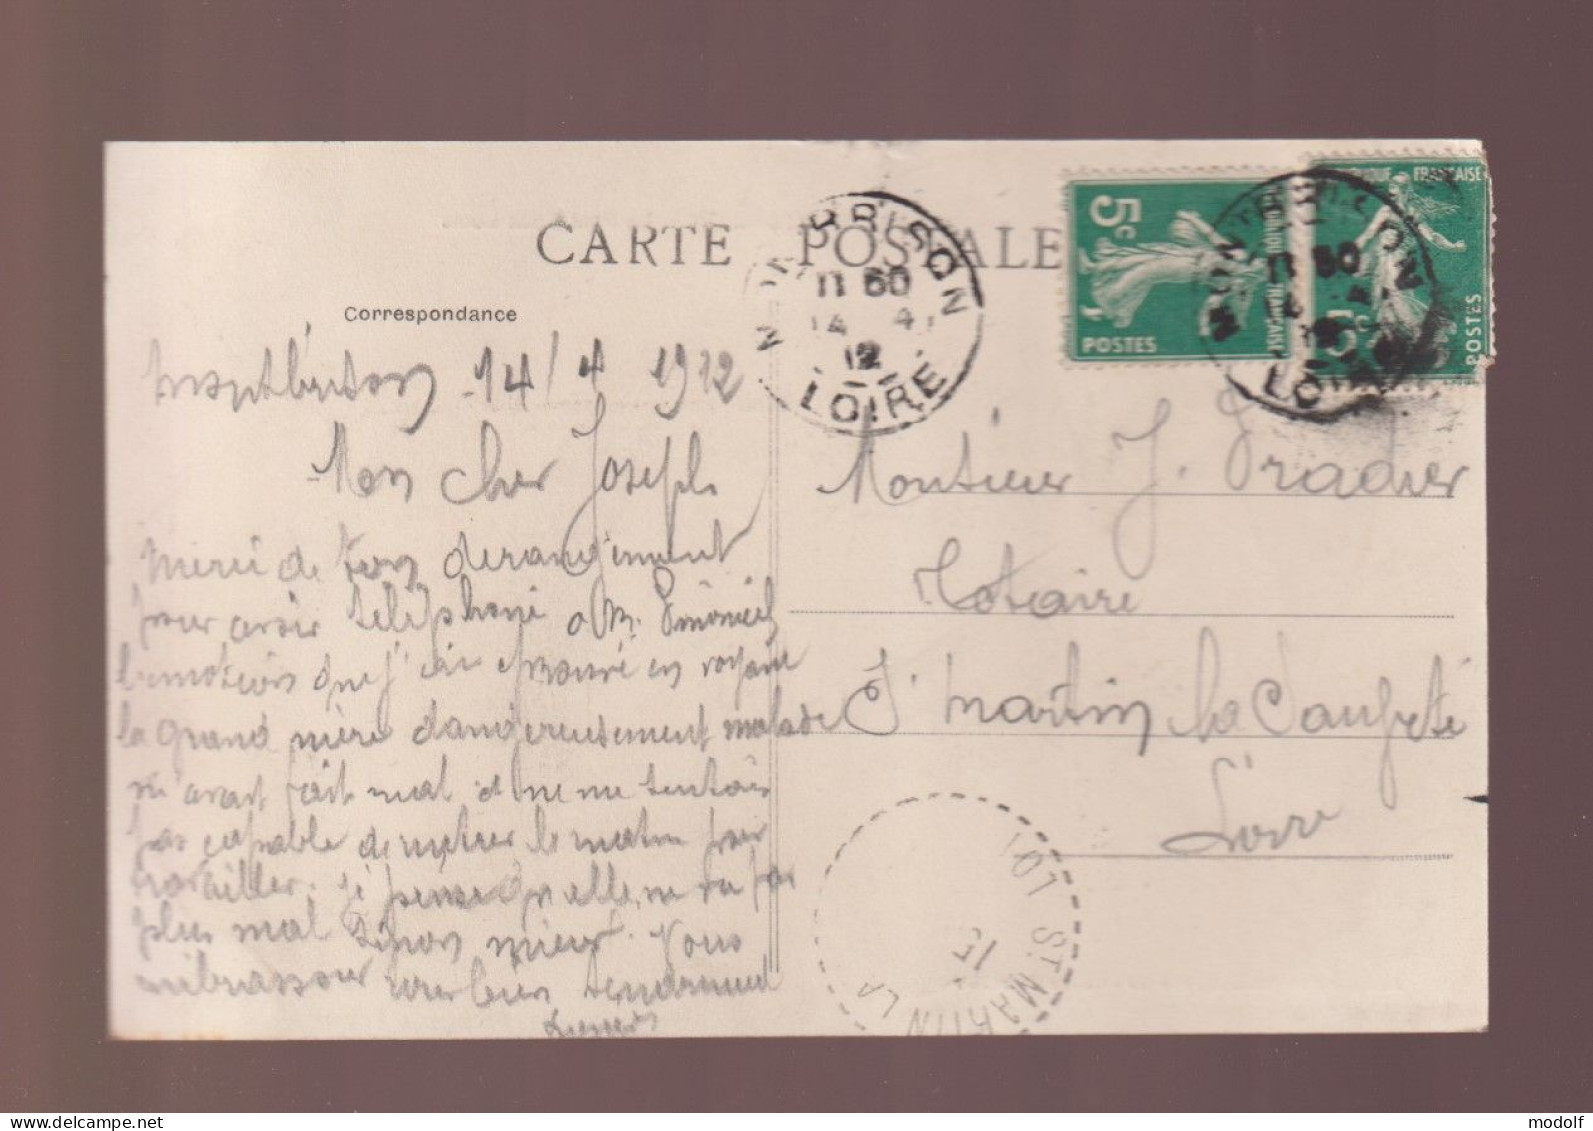 CARTE POSTALE
Correspondance
MONTBRISON
11 50
14 4
12
LOIRE
5c
POSTES
RÉPUBLIQUE FRANÇAISE
5c
POSTES
MONTBRISON
LOIRE
Montbrison 14/4 1912
Mon cher Joseph
Merci de ton derangement
pour avoir téléphoné a M.
l'émotion que j'ai éprouvé en voyant
la grand mère dangereusement malade
m'avait fait mal je ne me sentais
pas capable de rentrer le matin pour
travailler. je pense qu'elle ne va pas
plus mal sinon mieux. Vous
embrassons tous bien tendrement
Monsieur J. Pradier
Notaire
St Martin la Sauveté
Loire
ST MARTIN LA
LOI
15
www.delcampe.net
modolf